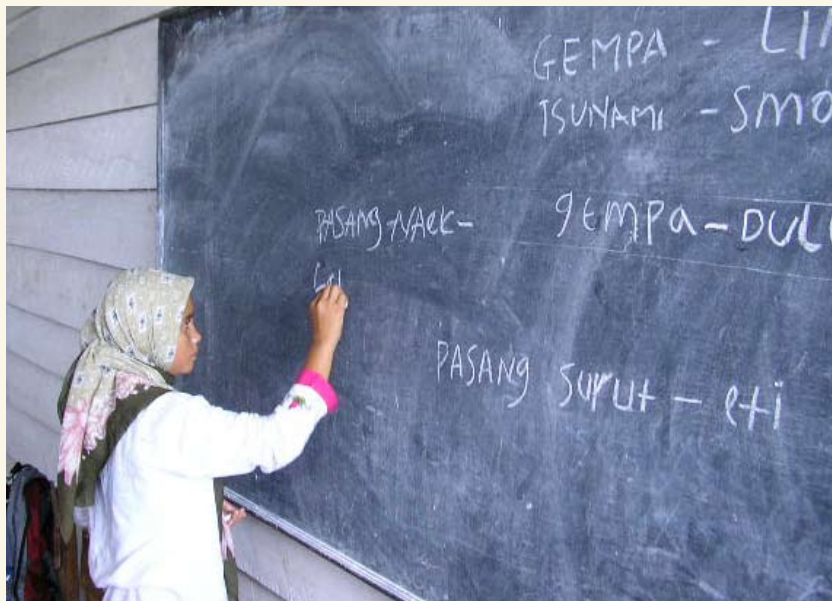 GEMPA - LIN
TSUNAMI - SMO
PASANG-NAek- gEMPa-DULU
PASANg SuruT - eti